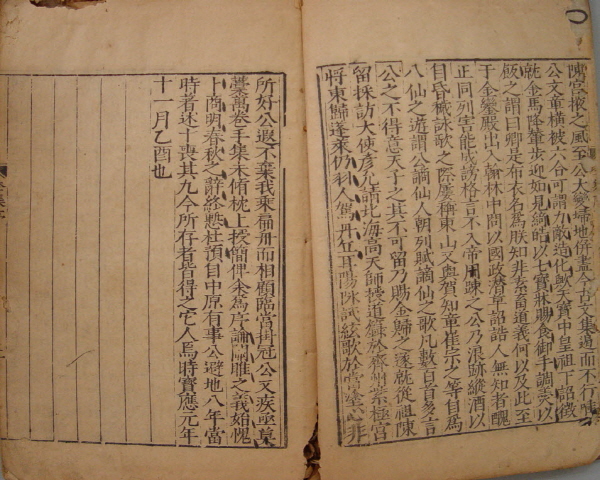 陳宮掖之風至公大變掃地併盡今古文集遏而不行唯
公文章橫被六合可謂力敵造化歟天寶中皇祖下詔徵
就金馬降輦步迎如見綺皓以七寶牀賜食御手調羹以
飯之謂曰卿是布衣名為朕知非素畜道義何以及此至
于金鑾殿出入翰林中問以國政潛草詔誥人無知者醜
正同列害能成謗格言不入帝用疎之公乃浪跡縱酒以
自昏穢詠歌之際屢稱東山又與賀知章崔宗之等自為
八仙之遊謂公謫仙人朝列賦謫仙之歌凡數百首多言
公之不得意天子知其不可留乃賜金歸之遂就從祖陳
留採訪大使彦允請北海高天師授道籙於齊州紫極宮
將東歸蓬萊仍羽人駕丹丘耳陽冰試絃歌於當塗心非
所好公遐不棄我乘扁舟而相顧臨當挂冠公又疾亟草
藁萬卷手集未修枕上授簡俾余為序論關雎之義始愧
卜商明春秋之辭終慙杜預自中原有事公避地八年當
時著述十喪其九今所存者皆得之它人焉時寶應元年
十一月乙酉也